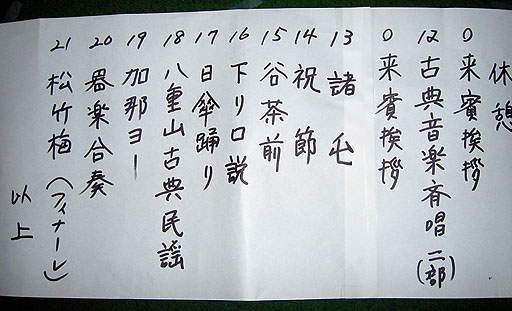 休憩
0 来賓挨拶
12 古典音楽斉唱(二部)
0 来賓挨拶
13 諸屯
14 祝節
15 谷茶前
16 下り口説
17 日傘踊り
18 八重山古典民謡
19 加那ヨー
20 器楽合奏
21 松竹梅(フィナーレ)
以上